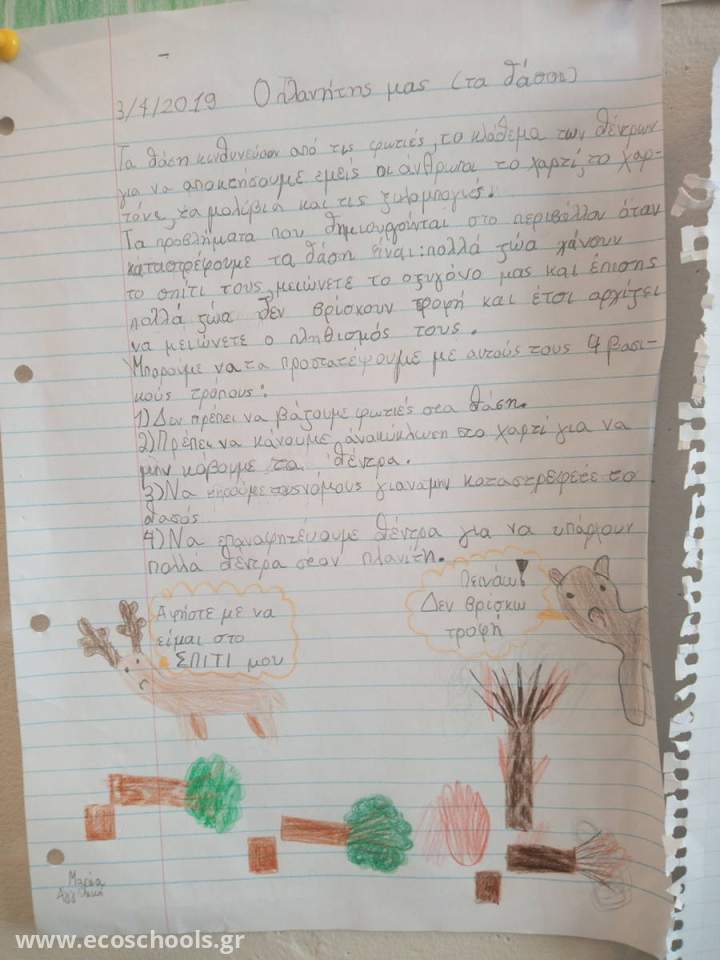 3/4/2019 Ο πλανήτης μας (τα δάση)
Τα δάση κινδυνεύουν από τις φωτιές, το κλάδεμα των δέντρων
για να αποκτήσουμε εμείς οι άνθρωποι το χαρτί, το χαρ-
τόνι, τα μολύβια και τις ξυλομπογιές.
Τα προβλήματα που δημιουργούνται στο περιβάλλον όταν
καταστρέφουμε τα δάση είναι: πολλά ζώα χάνουν
το σπίτι τους, μειώνετε το οξυγόνο μας και επισης
πολλά ζώα δεν βρίσκουν τροφή και έτσι αρχίζει
να μειώνετε ο πληθισμός τους.
Μπορούμε να τα προστατέψουμε με αυτούς τους 4 βασι-
κούς τρόπους:
1) Δεν πρέπει να βάζουμε φωτιές στα δάση.
2) Πρέπει να κάνουμε ανακύκλωση στο χαρτί για να
μην κόβουμε τα δέντρα.
3) Να τηρούμε τους νόμους για να μην καταστρεφετε το
δασός
4) Να επαναφητέυουμε δέντρα για να υπάρχουν
πολλά δέντρα στον πλανίτη.
Αφήστε με να
είμαι στο
ΣΠΙΤΙ μου
Πεινάω!
Δεν βρίσκω
τροφή
Μαρία
www.ecoschools.gr